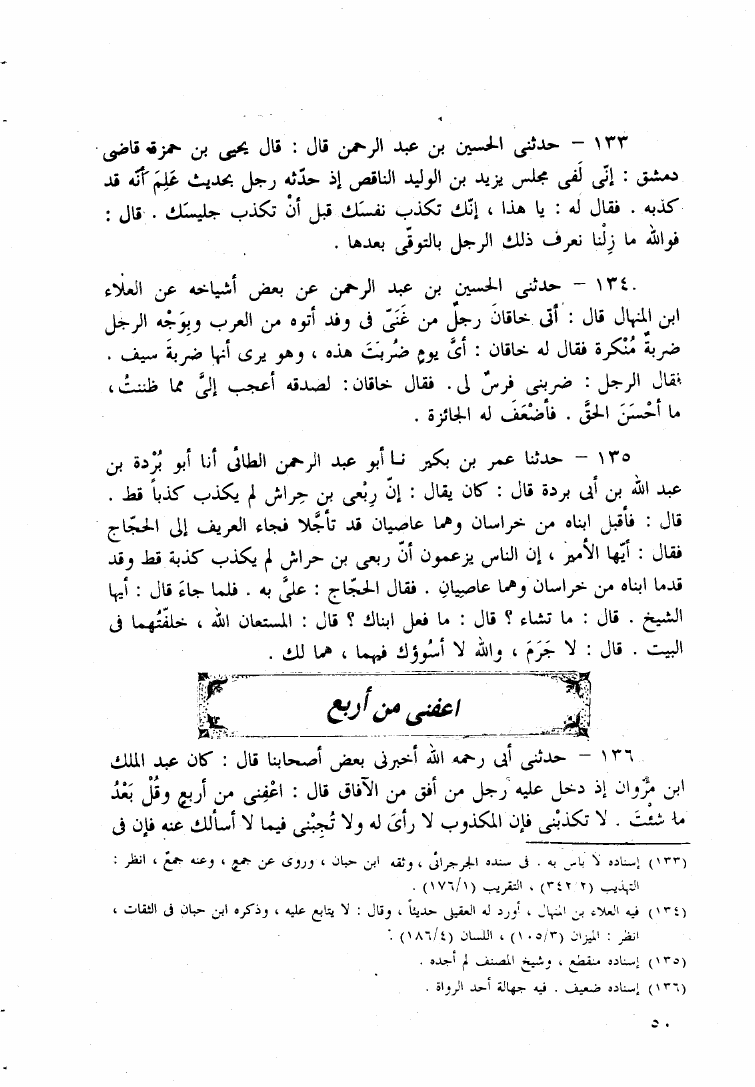 ١٣٣ – حدثنى الحسين بن عبد الرحمن قال : قال يحيى بن حمزة قاضى
دمشق : إنّى لَفى مجلس يزيد بن الوليد الناقص إذ حدّثه رجل بحديث عَلِمَ أنّه قد
كذبه . فقال له : يا هذا ، إنّك تكذب نفسَك قبل أنْ تكذب جليسَك . قال :
فوالله ما زِلْنا نعرف ذلك الرجل بالتوقّى بعدها .
١٣٤ – حدثنى الحسين بن عبد الرحمن عن بعض أشياخه عن العلاء
ابن المنهال قال : أتى خاقانَ رجلٌ من غَنَىّ فى وفد أتوه من العرب وبِوَجْه الرجل
ضربةٌ مُنْكرة فقال له خاقان : أىَّ يومٍ ضُرِبتَ هذه ، وهو يرى أنها ضربةَ سيف .
فقال الرجل : ضربنى فرسٌ لى. فقال خاقان: لصدقه أعجب إلىَّ مما ظننتُ،
ما أحْسَنَ الحقَّ . فأضْعَفَ له الجائزة .
١٣٥ – حدثنا عمر بن بكير نـا أبو عبد الرحمن الطائى أنا أبو بُرْدة بن
عبد الله بن أبى بردة قال : كان يقال : إنّ رِبْعى بن حِراش لم يكذب كذباً قط .
قال : فأقبل ابناه من خراسان وهما عاصيان قد تأجَّلا فجاء العريف إلى الحجّاج
فقال : أيّها الأمير ، إن الناس يزعمون أنّ ربعى بن حراش لم يكذب كذبة قط وقد
قدما ابناه من خراسان وهما عاصيانِ . فقال الحجّاج : علىَّ به . فلما جاءَ قال : أيها
الشيخ . قال : ما تشاء ؟ قال : ما فعل ابناك ؟ قال : المستعان الله ، خلفّتُهما فى
البيت . قال : لا جَرَمَ ، والله لا أسُوؤك فيهما ، هما لك .
اعفنى من أربع
١٣٦ – حدثنى أبى رحمه الله أخبرنى بعض أصحابنا قال : كان عبد الملك
ابن مرْوان إذ دخل عليه رجل من أفق من الآفاق قال : اعْفِنى من أربعٍ وقُلْ بَعْدُ
ما شئْتَ . لا تكذبْنى فإن المكذوب لا رأىَ له ولا تُجِبْنى فيما لا أسألك عنه فإن فى
(١٣٣) إسناده لا بأس به . فى سنده الجرجرائى ، وثقه ابن حبان ، وروى عن جمع ، وعنه جمعٌ ، انظر :
التهذيب (٣٤٢/٢) ، التقريب (١٧٦/١) .
(١٣٤) فيه العلاء بن المنهال ، أورد له العقيلى حديثاً ، وقال : لا يتابع عليه ، وذكره ابن حبان فى الثقات ،
انظر : الميزان (١٠٥/٣) ، اللسان (١٨٦/٤) .
(١٣٥) إسناده منقطع ، وشيخ المصنف لم أجده .
(١٣٦) إسناده ضعيف . فيه جهالة أحد الرواة .
٥٠